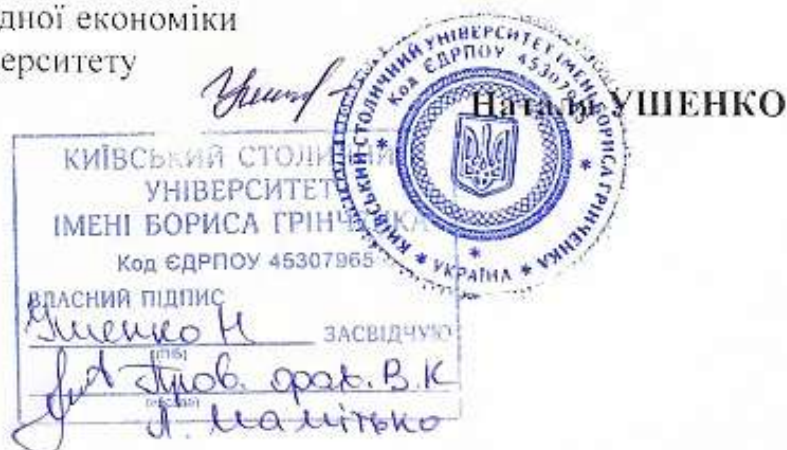 дної економіки
ерситету
Наталя УШЕНКО
КИЇВСЬКИЙ СТОЛИЧНИЙ УНІВЕРСИТЕТ ІМЕНІ БОРИСА ГРІНЧЕНКА * УКРАЇНА *
Код ЄДРПОУ 45307965
КИЇВСЬКИЙ СТОЛИЧНИЙ
УНІВЕРСИТЕТ
ІМЕНІ БОРИСА ГРІНЧЕНКА
Код ЄДРПОУ 45307965
ВЛАСНИЙ ПІДПИС
Ушенко Н ЗАСВІДЧУЮ
(ПІБ)
Пров. фах. В.К
(посада)
Л. Мамітько